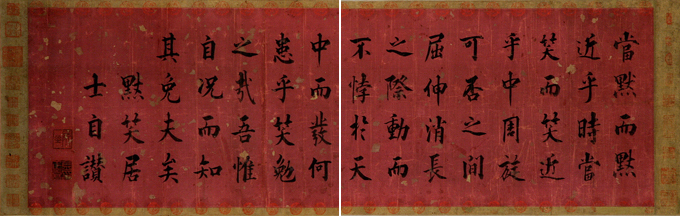 當默而默
近乎時當
笑而笑近
乎中周旋
可否之間
屈伸消長
之際動而
不悖於天
中而發何
患乎笑勉
之哉吾惟
自况而知
其免夫矣
默笑居
士自讚